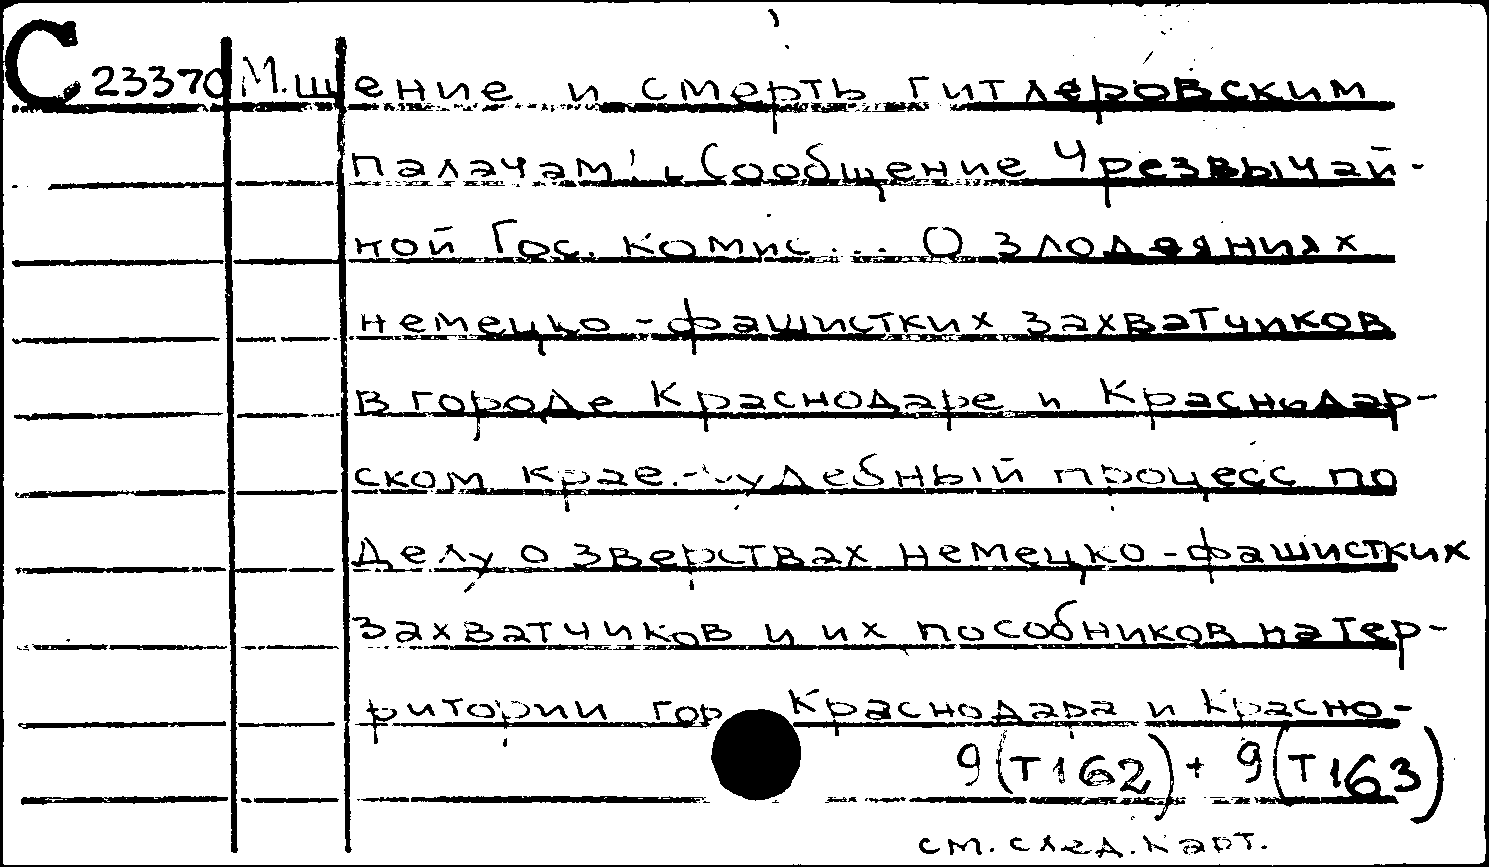 С 23370 М.щение и смерть гитлеровским
палачам! Сообщение Чрезвычай-
ной Гос. комис... О злодеяниях
немецко-фашистких захватчиков
в городе Краснодаре и Краснодар-
ском крае.- Судебный процесс по
делу о зверствах немецко-фашистких
захватчиков и их пособников на тер-
ритории гор. Краснодара и Красно-
9(Т162) + 9(Т163)
см. след. карт.